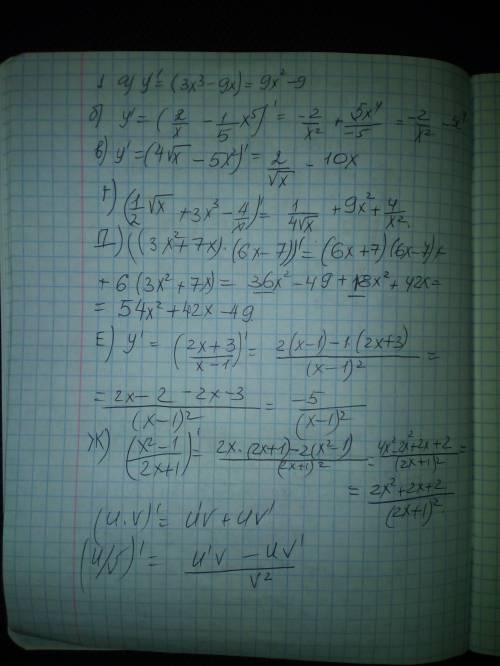 1 а) y' = (3x³ - 9x) = 9x² - 9
б) y' = (2/x - 1/5 x⁵)' = -2/x² + 5x⁴/-5 = -2/x² - x⁴
в) y' = (4√x - 5x²)' = 2/√x - 10x
г) (1/2 √x + 3x³ - 4/x)' = 1/4√x + 9x² + 4/x²
Д) ((3x² + 7x) · (6x - 7))' = (6x + 7)(6x - 7) +
+ 6 (3x² + 7x) = 36x² - 49 + 18x² + 42x =
= 54x² + 42x - 49
Е) y' = (2x + 3 / x - 1)' = 2(x - 1) - 1 (2x + 3) / (x - 1)² =
= 2x - 2 - 2x - 3 / (x - 1)² = -5 / (x - 1)²
Ж) (x² - 1 / 2x + 1)' = 2x · (2x + 1) - 2(x² - 1) / (2x + 1)² = 4x² - 2x² + 2x + 2 / (2x + 1)² =
= 2x² + 2x + 2 / (2x + 1)²
(U · V)' = U'V + UV'
(U/V)' = U'V - UV' / V²